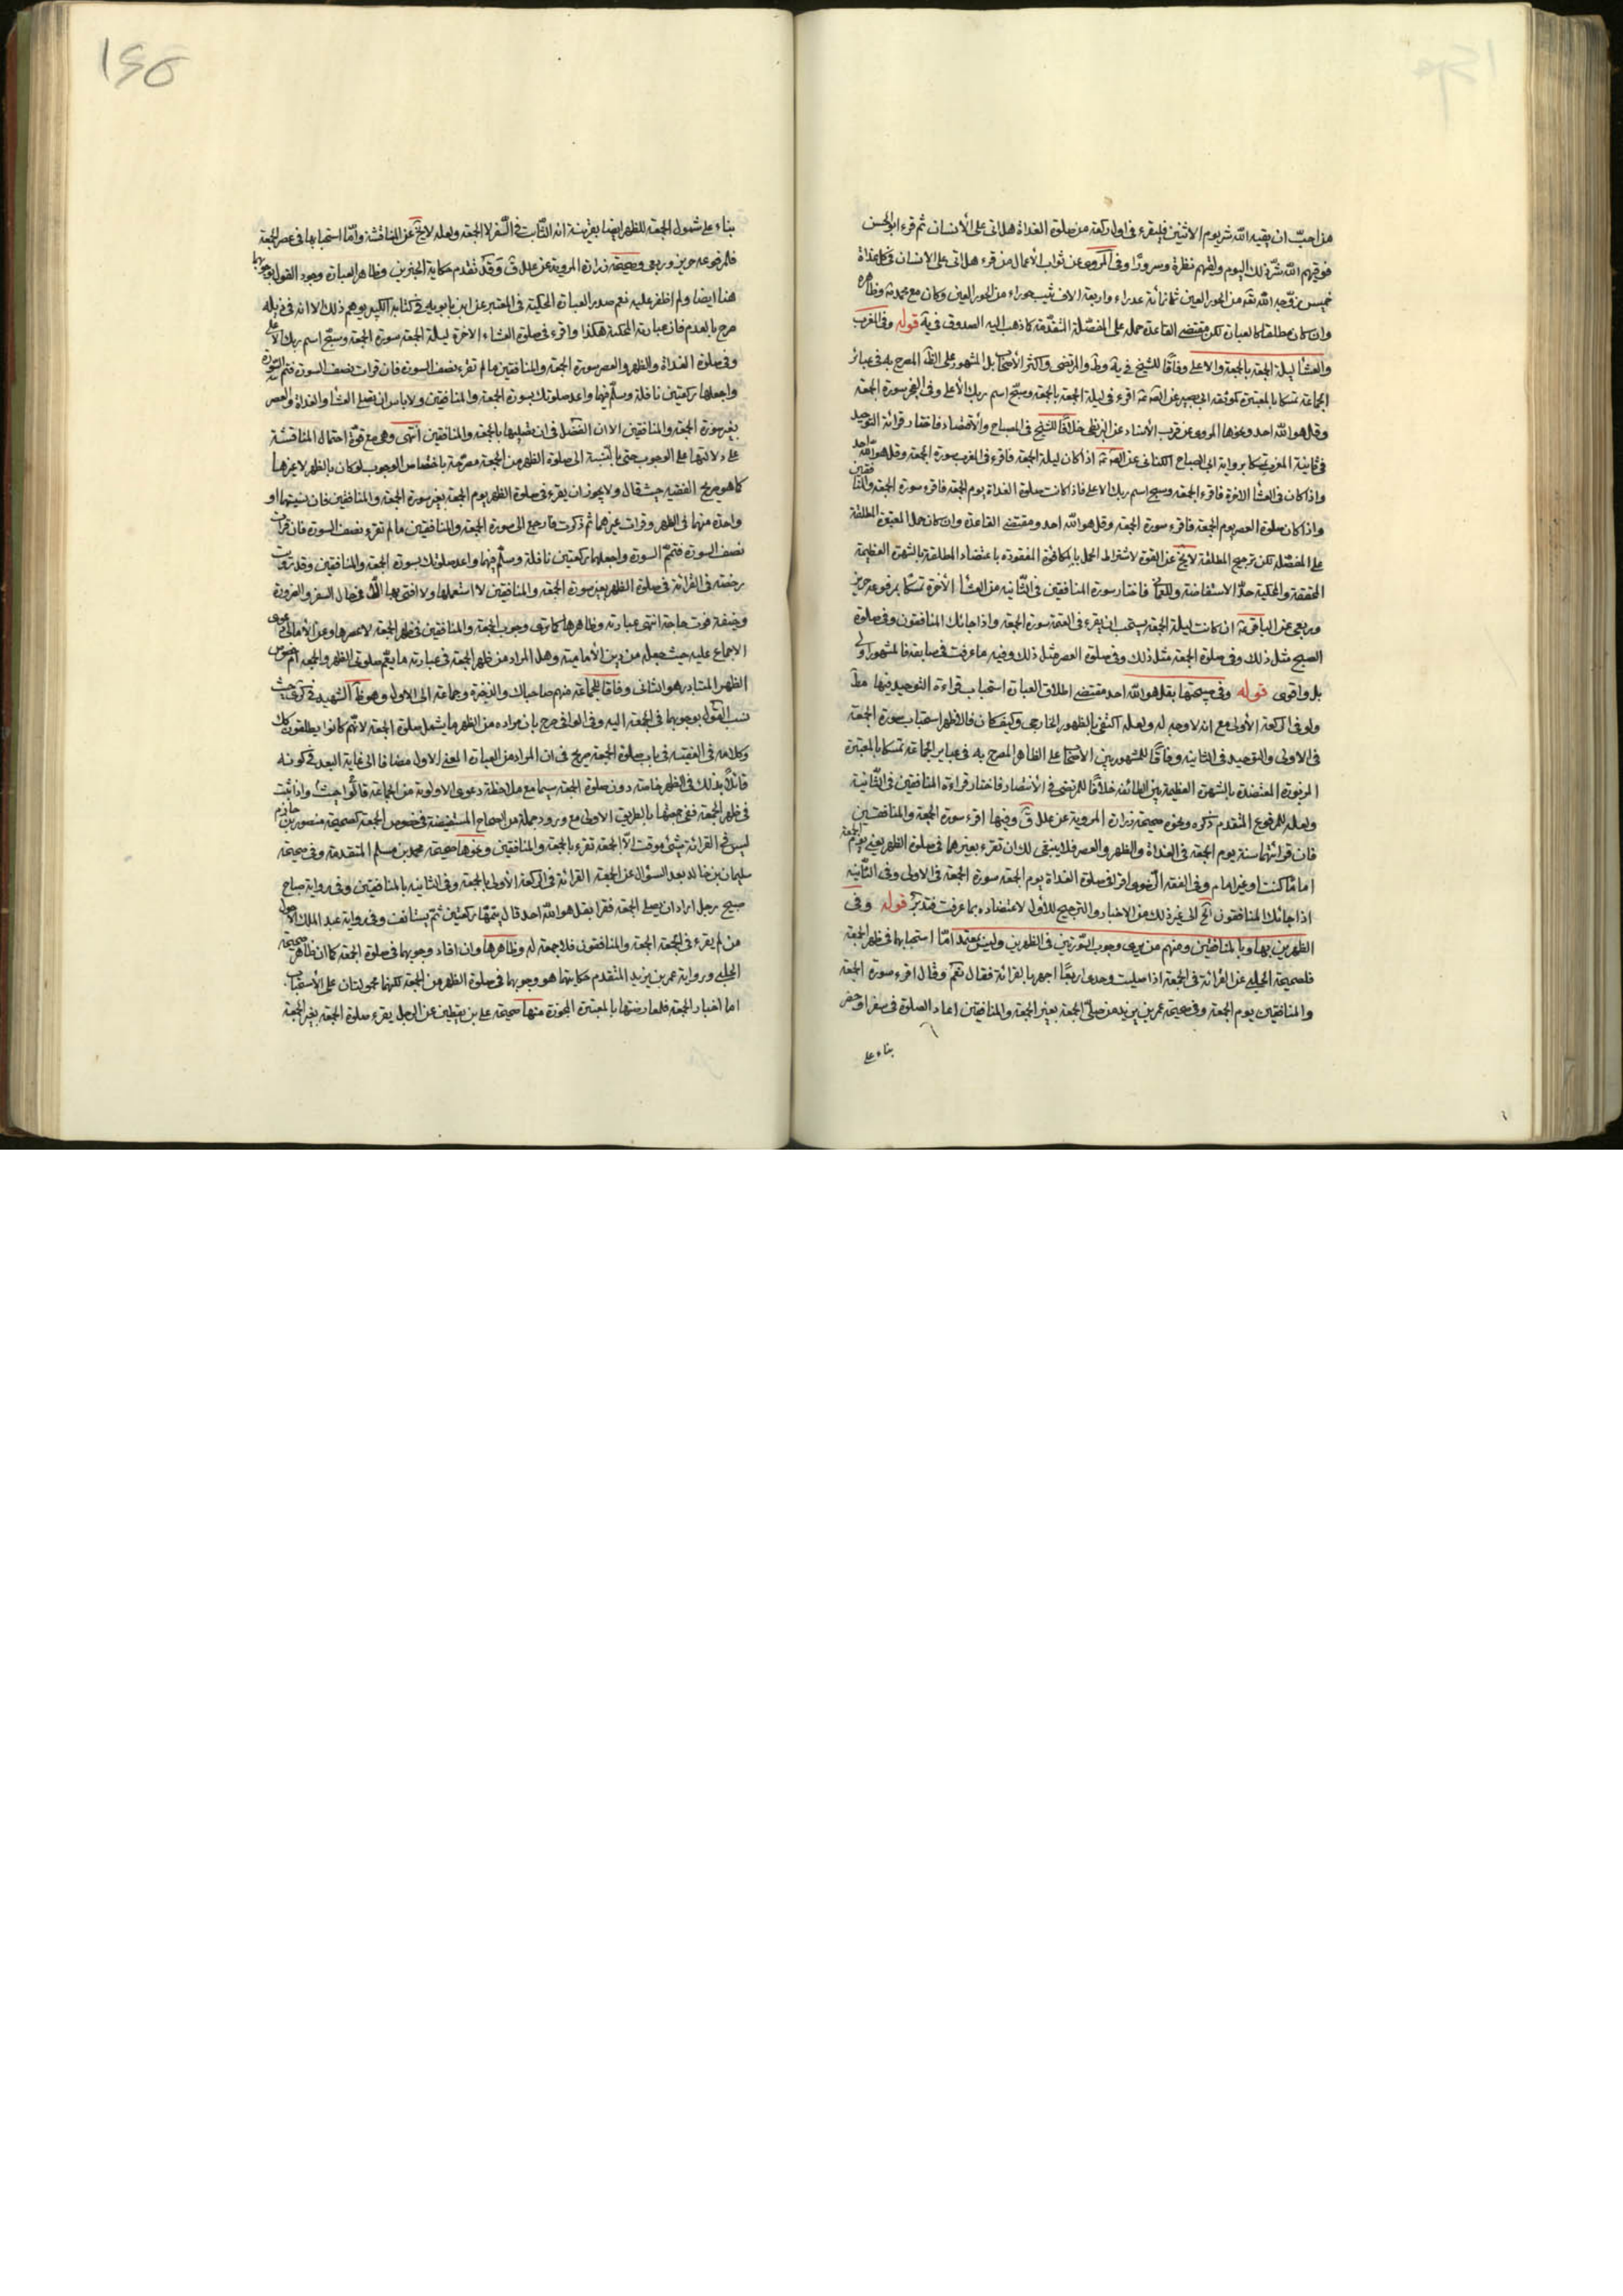 من احبّ ان يقيه الله شر يوم الاثنين فليقرء فى اول ركعة من صلوة الغداة هل اتى على الأنسان ثم قرء ابو الحسن
فوقيهم الله شرّ ذلك اليوم ولقّيهم نظرة وسرورًا وفى المروى عن ثواب الأعمال من قرء هل اتى على الانسان فى كل غداة
خميس زوّجه الله من الحور العين ثمانمأئة عذراء واربعة الاف ثيب حوراء من الحور العين وكان مع محمد وظاهره
وان كان مطلقا كالعبارة لكن مقتضى القاعدة حمله على المفصّلة المتقدّمة كما ذهب اليه الصدوق فى يه قوله وفى المغرب
والعشأ ليلة الجمعة بالجمعة والاعلى وفاقًا للشيخ فى يه وط والمرتضى واكثر الأصحاب بل المشهور على الظ المصرح به فى عبائر
الجماعة تمسكا بالمعتبرة كموثقة ابى بصير عن اقرء فى ليلة الجمعة بالجمعة وسبّح اسم ربك الأعلى وفى الفجر سورة الجمعة
وقل هو الله احد ونحوها المروى عن قرب الأسناد عن البزنطى خلافًا للشيخ فى المصباح والأقتصاد فاختار قرائة التوحيد
فى ثانية المغرب تمسكا برواية ابى الصباح الكنانى عن اذا كان ليلة الجمعة فاقرء فى المغرب سورة الجمعة وقل هو الله احد
واذا كان فى العشأ الاخرة فاقرء الجمعة وسبح اسم ربك الاعلى فاذا كانت صلوة الغداة يوم الجمعة فاقرء سورة الجمعة والمنافقين
واذا كان صلوة العصر يوم الجمعة فاقرء سورة الجمعة وقل هو الله احد ومقتضى القاعدة وان كان حمل المعتبرة المطلقة
على المفصّلة لكن ترجيح المطلقة لا يخ عن القوة لاشتراط الحمل بالمكافئة المفقودة باعتضاد المطلقة بالشهرة العظيمة
المحققة والمحكية حدّ الاستفاضة وللعمانى فاختار سورة المنافقين فى الثانية من العشأ الأخرة تمسكًا بمرفوعة حريز
وربعى عن الباقر ان كانت ليلة الجمعة يستحب ان يقرء فى العتمة سورة الجمعة واذا جائك المنافقون وفى صلوة
الصبح مثل ذلك وفى صلوة الجمعة مثل ذلك وفى صلوة العصر مثل ذلك وفيه ما عرفت فى سابقه فالمشهور اولى
بل واقوى قوله وفى صبحتها بقل هو الله احد مقتضى اطلاق العبارة استحباب قراءة التوحيد فيها مط
ولو فى الركعة الأولى مع انه لا وجه له ولعله اكتفى بالظهور الخارجى وكيف كان فالاظهر استحباب سورة الجمعة
فى الاولى والتوحيد فى الثانية وفاقًا للمشهور بين الأصحاب على الظاهر المصرح به فى عبائر الجماعة تمسكا بالمعتبرة
المزبورة المعتضدة بالشهرة العظيمة بين الطائفة خلافًا للمرتضى فى الأنتصار فاختار قراءة المنافقين فى الثّانية
ولعله للمرفوع المتقدم ذكره ونحوه صحيحة زرارة المروية عن علل ق وفيها اقرء سورة الجمعة والمنافقين
فان قرائتهما سنة يوم الجمعة فى الغداة والظهر والعصر فلا ينبغى لك ان تقرء بغيرهما فى صلوة الظهر يعنى يوم الجمعة
امامًا كنت او غير امام وفى الفقه الرضوى اقرأ فى صلوة الغداة يوم الجمعة سورة الجمعة فى الاولى وفى الثّانية
اذا جائك المنافقون الخ الى غير ذلك من الاخبار والترجيح للأول لاعتضاده بما عرفت فتدبر قوله وفى
الظهرين بها وبالمنافقين ومنهم من يرى وجوب السّورتين فى الظهرين وليس بمعتمد امّا استحبابها فى ظهر الجمعة
فلصحيحة الحلبى عن القرائة فى الجمعة اذا صليت وحدى اربعًا اجهر بالقرائة فقال نعم وقال اقرء سورة الجمعة
والمنافقين يوم الجمعة وفى صحيحة عمر بن يزيد من صلّى الجمعة بغير الجمعة والمنافقين اعاد الصلوة فى سفر او حضر
بناء على
١٤٥
بناء على شمول الجمعة للظهر ايضا بقرينة انه الثّابت فى السّفر لا الجمعة ولعله لا يخ عن المناقشة وامّا استحبابها فى عصر الجمعة
فلمرفوعة حريز وربعى وصحيحة زرارة المروية عن علل ق وقد تقدم حكاية الخبرين وظاهر العبارة وجود القول بوجوبها
هنا ايضا ولم اظفر عليه نعم صدر العبارة المحكية فى المعتبر عن ابن بابويه فى كتابه الكبير يوهم ذلك الا انه فى ذيله
صرح بالعدم فان عبارته المحكية هكذا واقرء فى صلوة العشاء الاخرة ليلة الجمعة سورة الجمعة وسبّح اسم ربك الأعلى
وفى صلوة الغداة والظهر والعصر سورة الجمعة والمنافقين ما لم تقرء نصف السورة فان قرات نصف السورة فتم السورة
واجعلها ركعتين نافلة وسلّم فيها واعد صلوتك بسورة الجمعة والمنافقين ولا باس ان تصلى العشأ والغداة والعصر
بغير سورة الجمعة والمنافقين الا ان الفضل فى ان تصليها بالجمعة والمنافقين انتهى وهى مع قوّة احتمال المناقشة
على دلالتها على الوجوب حتى بالنّسبة الى صلوة الظهر من الجمعة مصرّحة باختصاص الوجوب لو كان بالظهر لا غيرها
كما هو صريح الفقيه حيث قال ولا يجوز ان يقرء فى صلوة الظهر يوم الجمعة بغير سورة الجمعة والمنافقين فان نسيتهما او
واحدة منهما فى الظهر وقرات غيرهما ثم ذكرت فارجع الى سورة الجمعة والمنافقين ما لم تقرء نصف السورة فان قرات
نصف السورة فتمّم السورة واجعلها ركعتين نافلة وسلّم فيهما واعد صلوتك بسورة الجمعة والمنافقين وقد رويت
رخصة فى القرائة فى صلوة الظهر بغير سورة الجمعة والمنافقين لا استعملها ولا افتى بها الا فى حال السفر والضرورة
وخيفة فوت حاجة انتهى عبارته وظاهرها كما ترى وجوب الجمعة والمنافقين فى ظهر الجمعة لا عصرها وعن الأمالى دعوى
الاجماع عليه حيث جعله من دين الأمامية وهل المراد من ظهر الجمعة فى عبارته ما يعمّ صلوتى الظهر والجمعة ام خصوص
الظهر المتبادر هو الثانى وفاقًا للجماعة منهم صاحباك والذخيرة وجماعة الى الاول وهو ظ الشهيد فى كرى حيث
نسب القول بوجوبهما فى الجمعة اليه وفى الوافى صرح بان مراده من الظهر ما يشمل صلوة الجمعة لانّهم كانوا يطلقون كك
وكلامه فى الفقيه فى باب صلوة الجمعة صريح فى ان المراد من العبارة المعنى الاول مضافا الى غاية البعد فى كونه
قائلًا بذلك فى الظهر خاصة دون صلوة الجمعة سيما مع ملاحظة دعوى الاولوية من الجماعة قالوا حيث واذا ثبت
فى ظهر الجمعة ففى جمعتها بالطريق الأولى مع ورود جملة من الصحاح المستفيضة فى خصوص الجمعة كصحيحة منصور بن حازم
ليس فى القرائة شئ موقت الّا الجمعة تقرء بالجمعة والمنافقين ونحوها صحيحة محمد بن مسلم المتقدمة وفى صحيحة
سليمان بن خالد بعد السؤال عن الجمعة القرائة فى الركعة الأولى بالجمعة وفى الثانية بالمنافقين وفى رواية صباح
صبيح رجل اراد ان يصلى الجمعة فقرا بقل هو الله احد قال يتمّها ركعتين ثمّ يستانف وفى رواية عبد الملك الأحول
من لم يقرء فى الجمعة الجمعة والمنافقون فلا جمعة له وظاهرها وان افاد وجوبهما فى صلوة الجمعة كما ان ظاهر صحيحة
الحلبى ورواية عمر بن يزيد المتقدم حكايتهما هو وجوبهما فى صلوة الظهر من الجمعة لكنهما محمولتان على الأستحباب
اما اخبار الجمعة فلمعارضتها بالمعتبرة المجوزة منها صحيحة على بن يقطين عن الرجل يقرء صلوة الجمعة بغير الجمعة